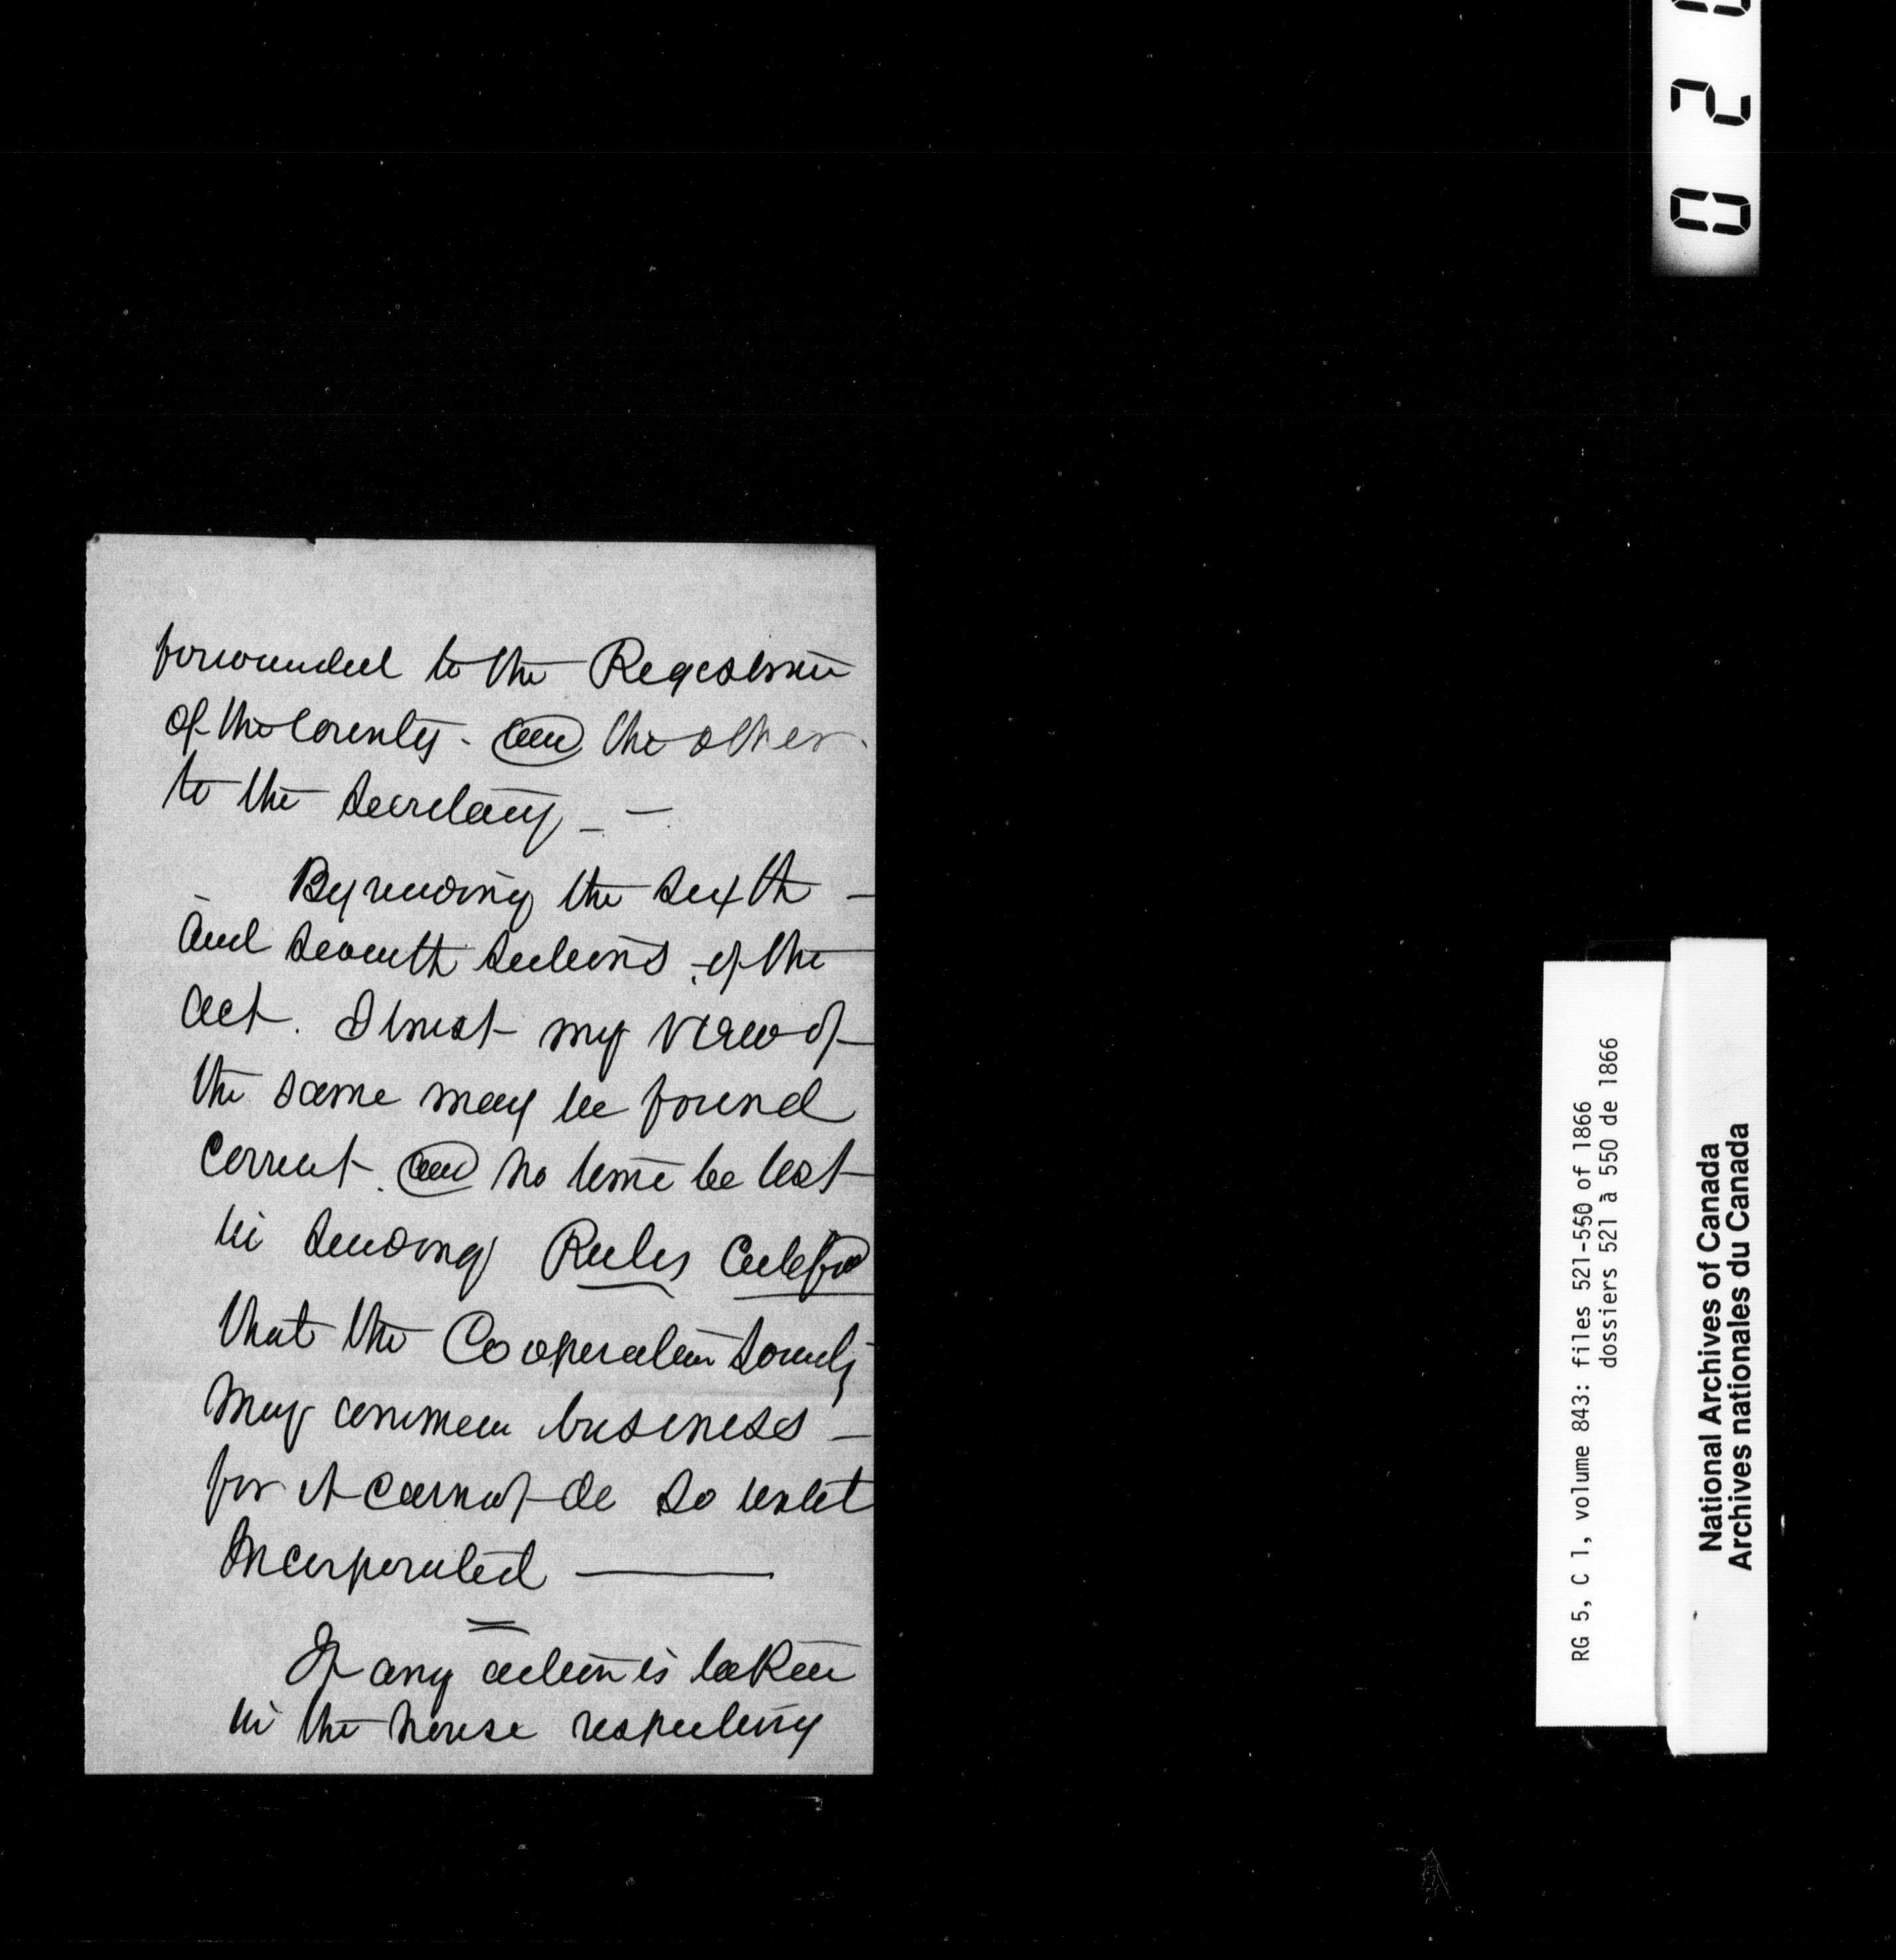 forwarded to the Registrar
of the County - and the other
to the Secretary - -
By reading the Sixth -
and Seventh Sections of the
Act. I trust my view of
the same may be found
correct. and no time be lost
in sending Rules
that the Cooperative Society
may commence business -
for it cannot do so until
Incorporated -
If any action is taken
in the house respecting
0 2
RG 5, C 1, volume 843: files 521-550 of 1866
dossiers 521 à 550 de 1866
National Archives of Canada
Archives nationales du Canada